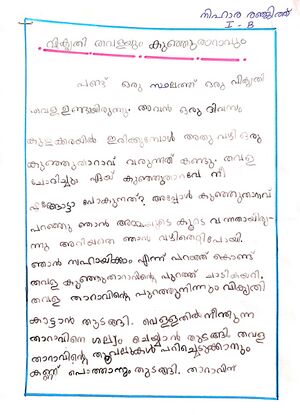 നിഹാര രഞ്ജിത്ത്
I - B
വികൃതി തവളയും കുഞ്ഞുതാറാവും
പണ്ട് ഒരു സ്ഥലത്ത് ഒരു വികൃതി
തവള ഉണ്ടായിരുന്നു. അവൻ ഒരു ദിവസം
കുളക്കരയിൽ ഇരിക്കുമ്പോൾ അതു വഴി ഒരു
കുഞ്ഞുതാറാവ് വരുന്നത് കണ്ടു. തവള
ചോദിച്ചു ഏയ് കുഞ്ഞുതാറാവേ നീ
എങ്ങോട്ടാ പോകുന്നത്? അപ്പോൾ കുഞ്ഞുതാറാവ്
പറഞ്ഞു ഞാൻ അമ്മയുടെ കൂടെ വന്നതായിരു-
ന്നു അറിയാതെ ഞാൻ വഴിതെറ്റിപോയി.
ഞാൻ സഹായിക്കാം എന്ന് പറഞ്ഞ് കൊണ്ട്
തവള കുഞ്ഞുതാറാവിന്റെ പുറത്ത് ചാടികയറി.
തവള താറാവിന്റെ പുറത്തുനിന്നും വികൃതി
കാട്ടാൻ തുടങ്ങി. വെള്ളത്തിൽ നീന്തുന്ന
താറാവിനെ ശല്യം ചെയ്യാൻ തുടങ്ങി തവള
താറാവിന്റെ തൂവലുകൾ പറിച്ചെടുക്കാനും
കണ്ണ് പൊത്താനും തുടങ്ങി. താറാവിന്